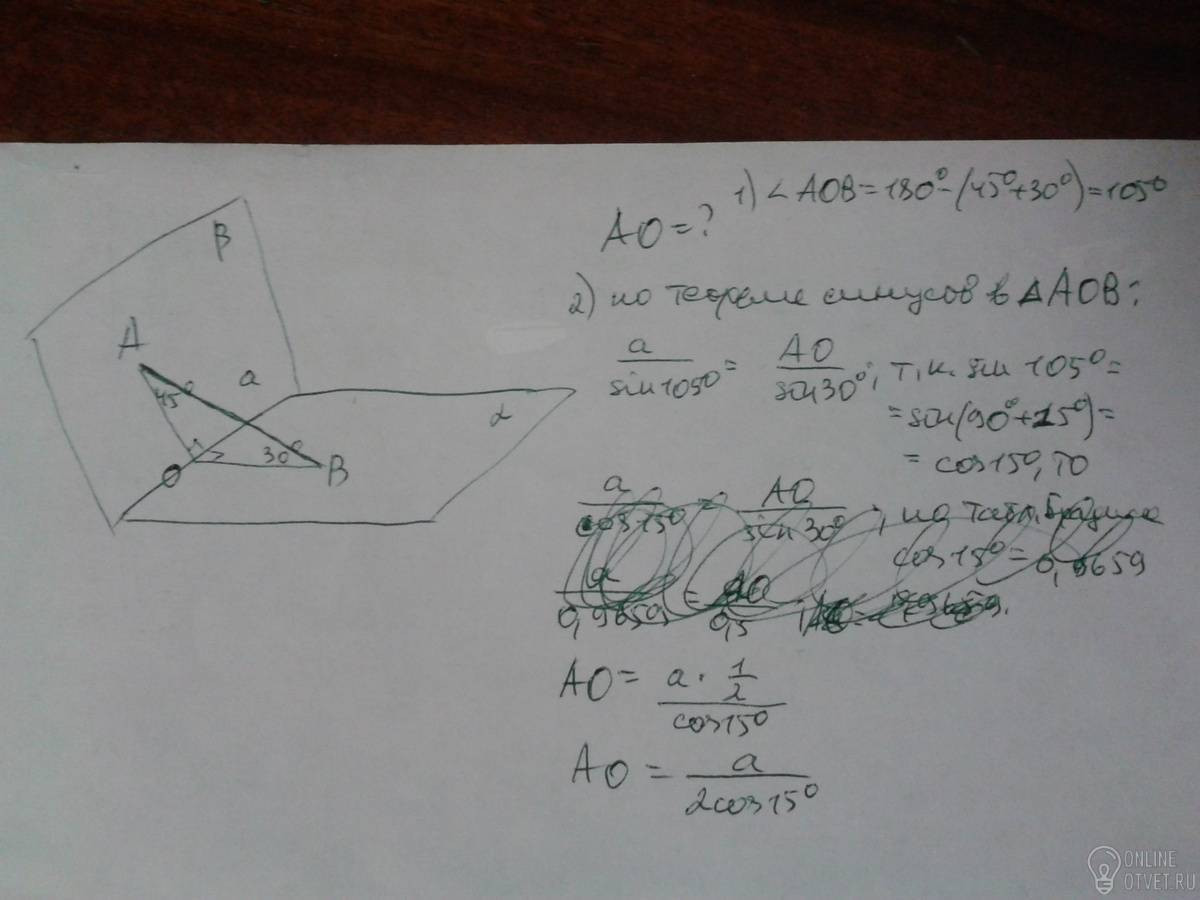 1) ∠AOB = 180° - (45° + 30°) = 105°
AO = ?
2) по теореме синусов в ΔAOB:
a / sin 105° = AO / sin 30° ; т.к. sin 105° =
= sin(90° + 15°) =
= cos 15°, то
a / cos 15° = AO / sin 30° ; по табл. Брадиса
cos 15° = 0,9659
a / 0,9659 = AO / 0,5
AO = a · 1/2 / cos 15°
AO = a / 2cos 15°
β
A
a
45°
α
30°
B
O
ONLINE
OTVET.RU